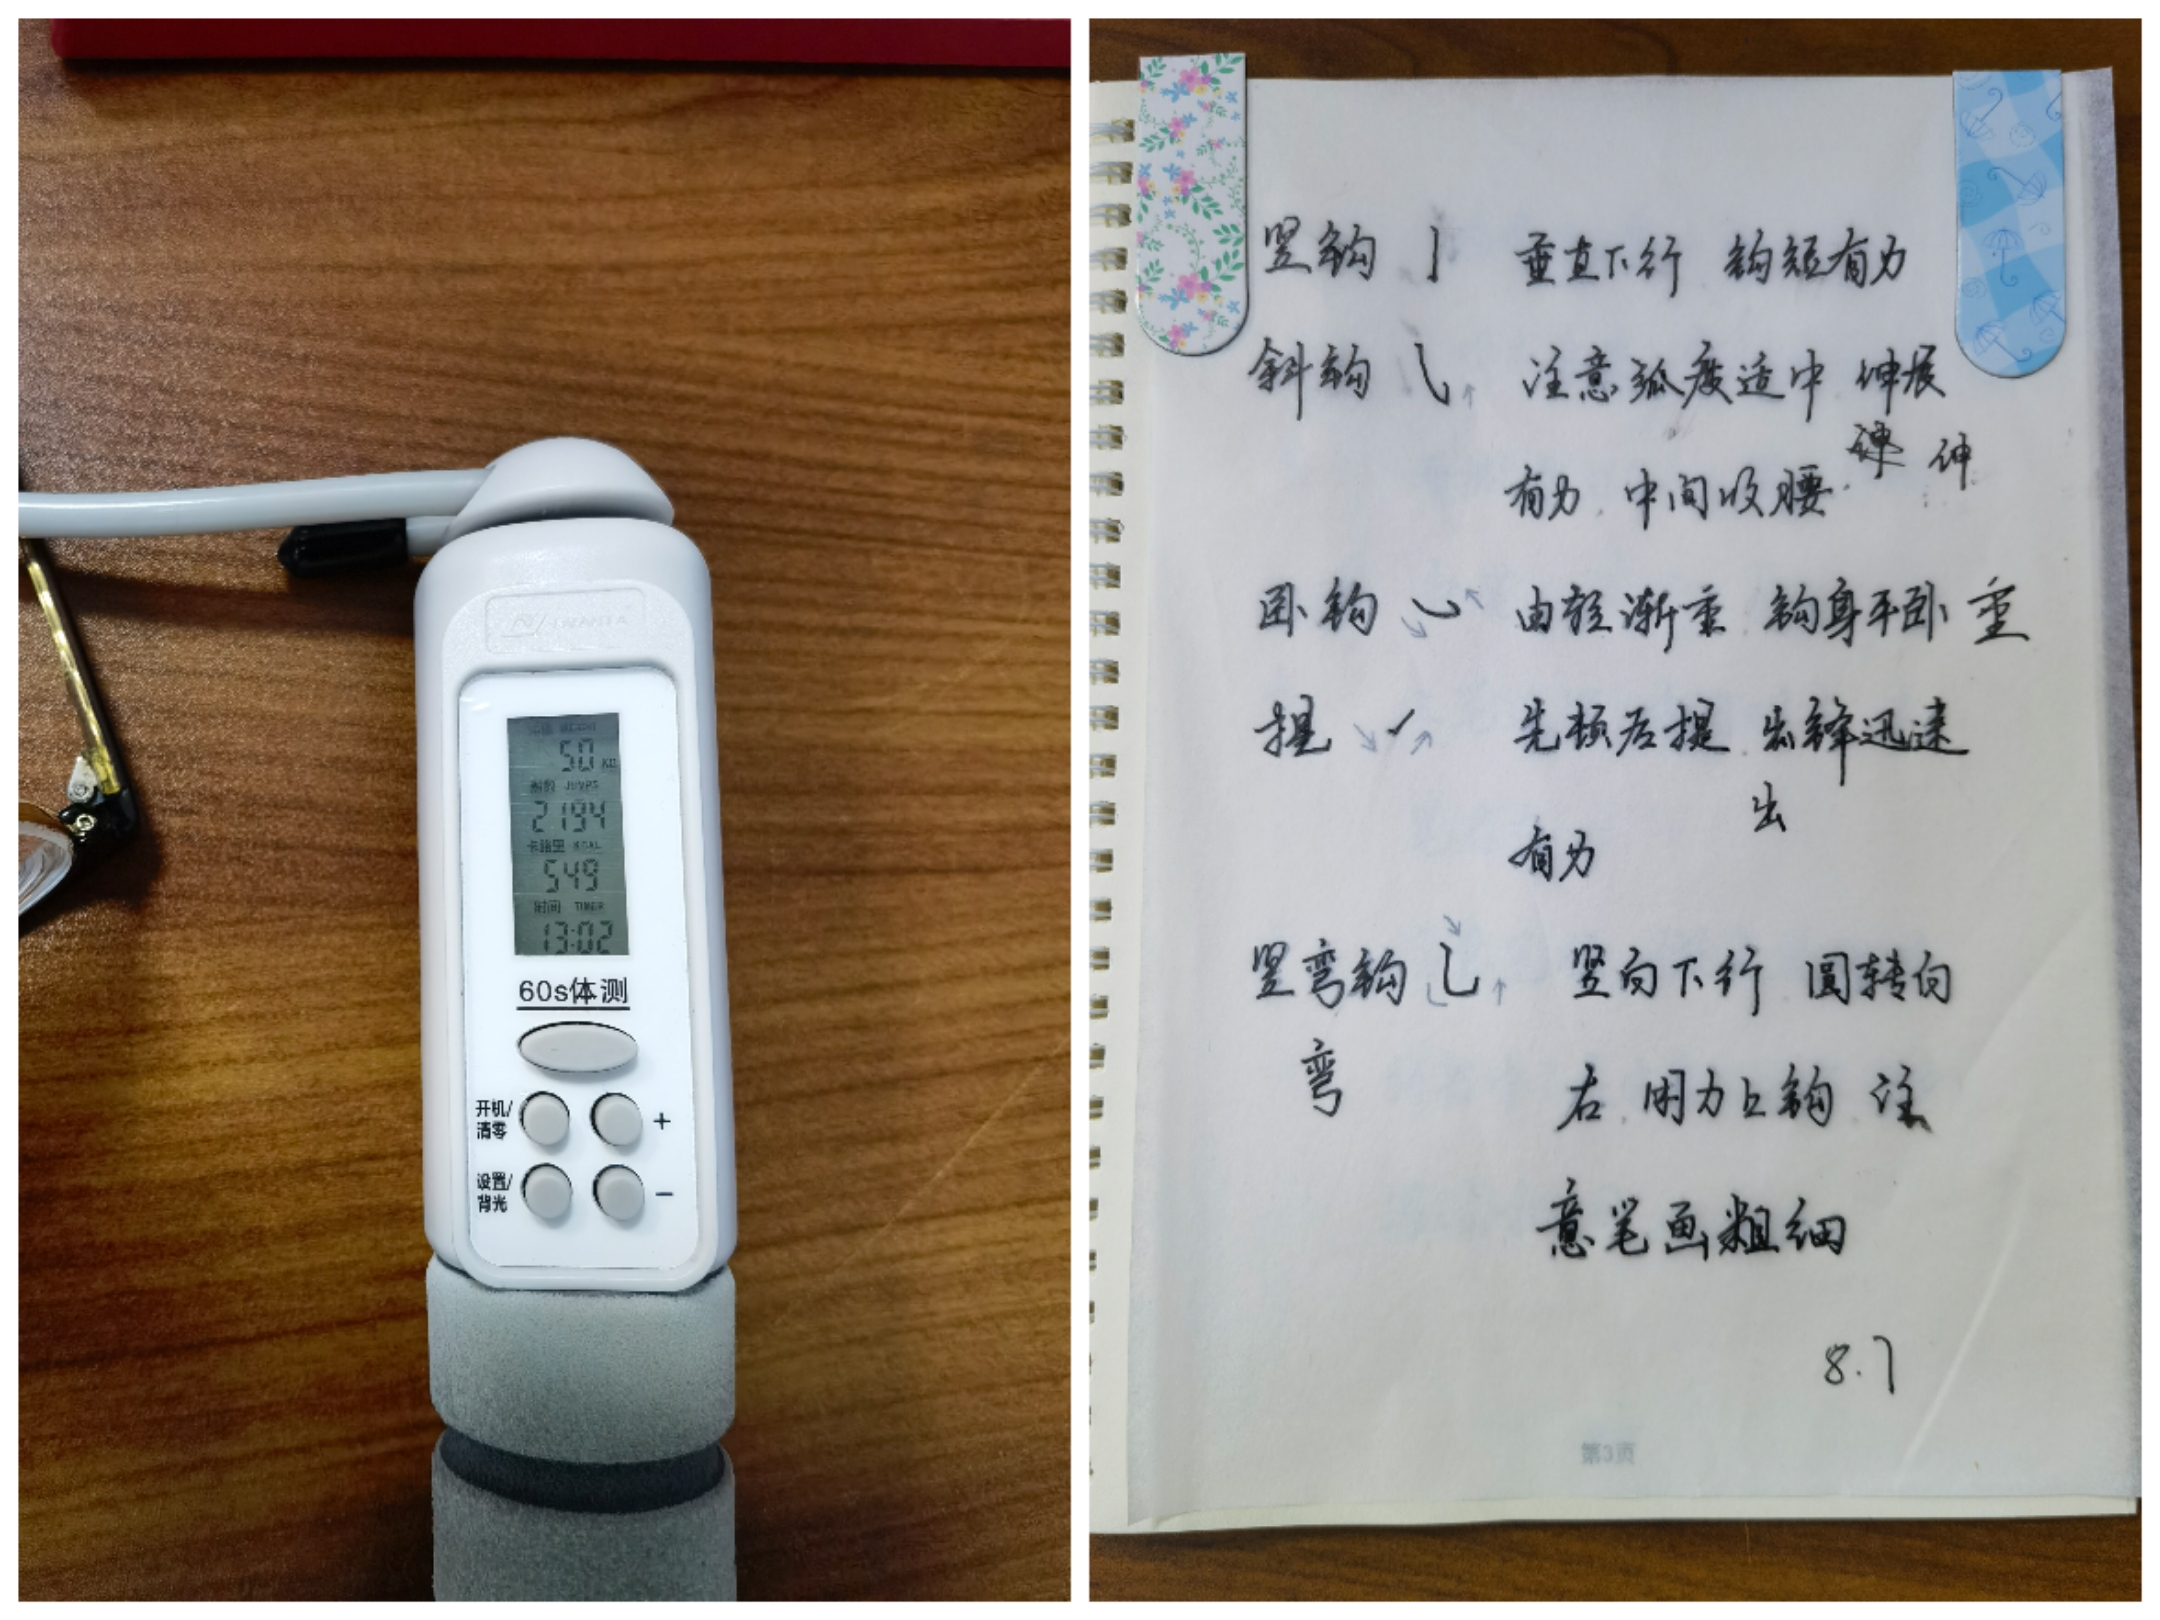 50 KG
JUMPS
2194
卡路里 KCAL
549
时间 TIMER
13:02
60s体测
开机/
清零
+
设置/
背光
-
竖钩 亅 垂直下行 钩短有力
斜钩 ㇂ 注意弧度适中 伸展
伸
有力 中间收腰
卧钩 ㇃ 由轻渐重 钩身平卧 重
提 ㇀ 先顿后提 出锋迅速
出
有力
竖弯钩 乚 竖向下行 圆转向
弯
右 用力上钩 注
意笔画粗细
8.7
第3页